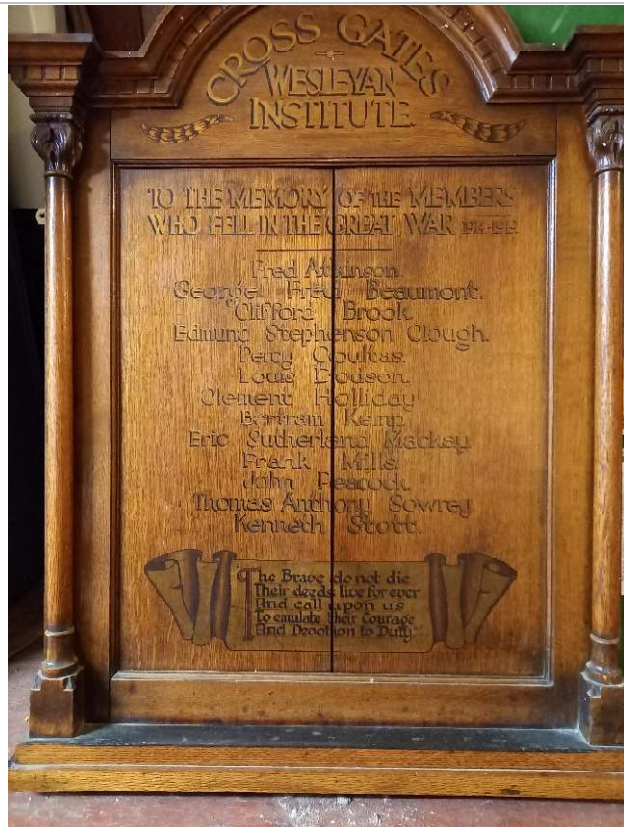 CROSS GATES
WESLEYAN
INSTITUTE
TO THE MEMORY OF THE MEMBERS
WHO FELL IN THE GREAT WAR 1914-1919
Fred Atkinson.
George Fred Beaumont.
Clifford Brook.
Edmund Stephenson Clough.
Percy Coultas.
Louis Dodson.
Clement Holliday
Bertram Kemp
Eric Sutherland Mackay
Frank Mills
John Peacock.
Thomas Anthony Sowrey
Kenneth Stott.
The Brave do not die
Their deeds live for ever
And call upon us
To emulate their Courage
And Devotion to Duty.